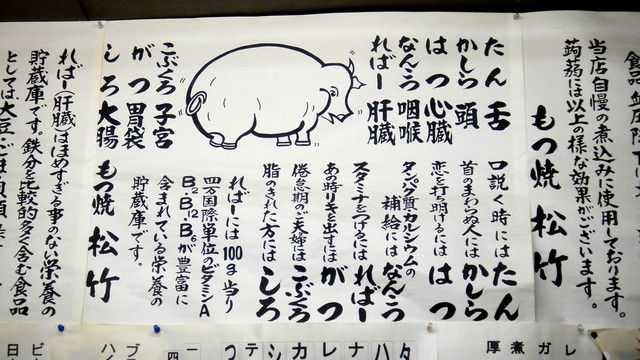 当店自慢の煮込みに使用しております。
蒟蒻には以上の様な効果がございます。
もつ焼 松竹
たん 舌
かしら 頭
はつ 心臓
なんこつ 咽喉
ればー 肝臓
こぶくろ 子宮
がつ 胃袋
しろ 大腸
口説く時には たん
首のまわらぬ人には かしら
恋を打ち明けるには はつ
タンパク質・カルシウムの
補給には なんこつ
スタミナをつけるには ればー
あの時リキを出すには がつ
倦怠期のご夫婦には こぶくろ
脂のきれた方には しろ
ればーには100g当り
四万国際単位のビタミンA
B2、B12、B6が豊富に
含まれている栄養の
貯蔵庫です。
もつ焼 松竹
ればー(肝臓)はほめすぎる事のない栄養の
貯蔵庫です。鉄分を比較的多く含む食品
としては大豆